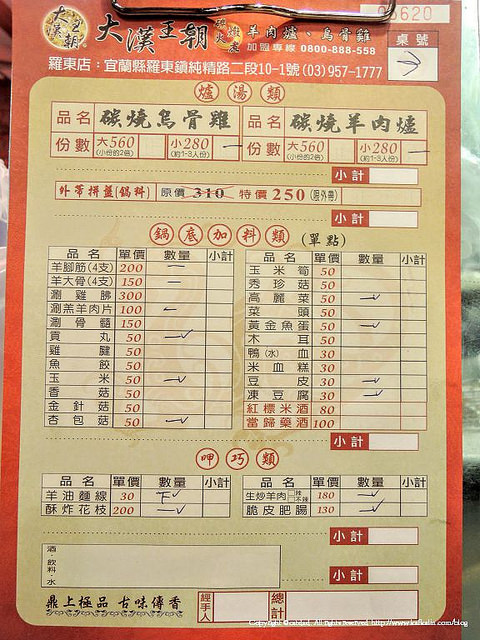 大漢王朝 大漢王朝 炭火 羊肉爐、烏骨雞
加盟專線 0800-888-558
6620
桌號
羅東店：宜蘭縣羅東鎮純精路二段10-1號 (03)957-1777
爐湯類
品名 碳燒烏骨雞 品名 碳燒羊肉爐
份數 大560 (小份的2倍) 小280 (約1-3人份) 一 份數 大560 (小份的2倍) 小280 (約1-3人份) 一
小計
外帶拼盤(鍋料) 原價 310 特價 250 (限外帶)
小計
鍋底加料類 (單點)
品名 單價 數量 小計 品名 單價 數量 小計
羊腳筋(4支) 200 一 玉米筍 50
羊大骨(4支) 150 一 秀珍菇 50
涮雞腸 300 高麗菜 50 一✓
涮羔羊肉片 100 一 菜頭 50
涮骨髓 150 黃金魚蛋 50 一✓
貢丸 50 一✓ 木耳 50
雞腱 50 鴨(水)血 30
魚餃 50 米血糕 30
玉米 50 一✓ 豆皮 30 一✓
香菇 50 凍豆腐 30 一✓
金針菇 50 紅標米酒 80
杏包菇 50 一✓ 當歸藥酒 100
小計
呷巧類
品名 單價 數量 小計 品名 單價 數量 小計
羊油麵線 30 下✓ 生炒羊肉 辣 不辣 180 一✓
酥炸花枝 200 一✓ 脆皮肥腸 130 一✓
小計
酒·飲料·水
小計
鼎上極品 古味傳香 經手人 總計